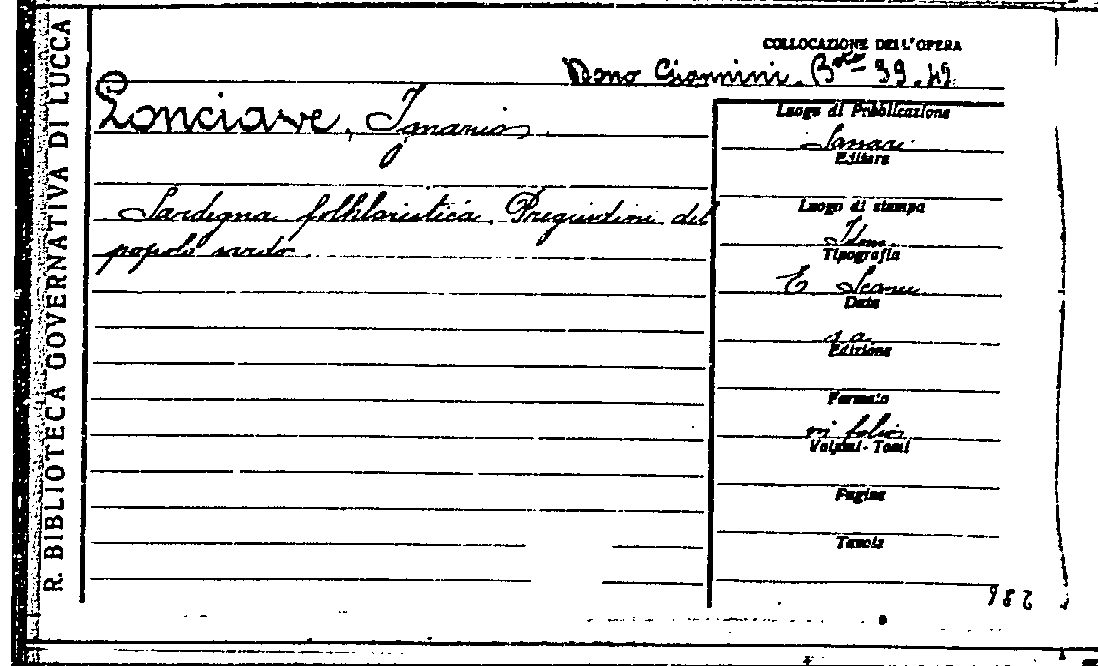 R. BIBLIOTECA GOVERNATIVA DI LUCCA
COLLOCAZIONE DELL'OPERA
Dono Giannini. B 39.49
Lonciave, Ignazio
Sardegna folkloristica. Pregiudizi del
popolo sardo
Luogo di Pubblicazione
Sassari
Editore
Luogo di stampa
Idem
Tipografia
E
Data
s.a.
Edizione
Formato
in folio
Volumi-Tomi
Pagine
Tavole